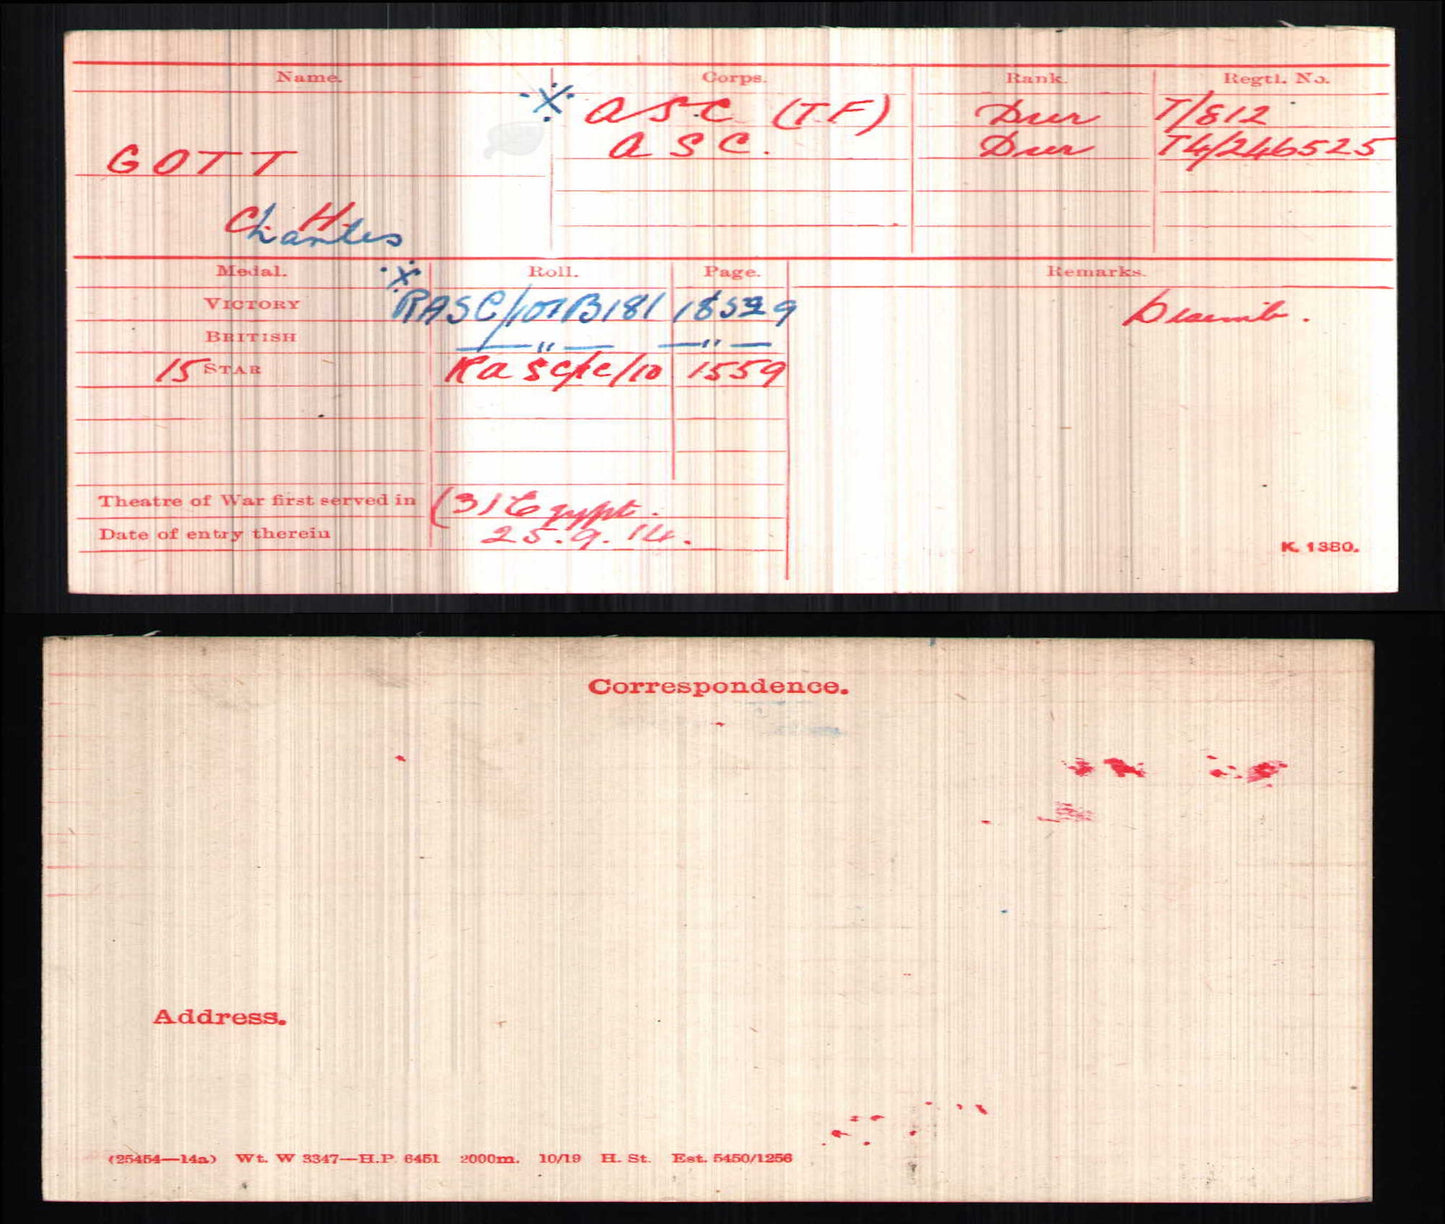 Name. Corps. Rank. Regtl. No.
※ ASC (T.F) Dvr T/812
GOTT ASC. Dvr T4/246525
C. H.
Charles
Medal. ※ Roll. Page. Remarks.
VICTORY RASC/101B181 18529 Disemb.
BRITISH — " — — " —
15 STAR RASC/1C/10 1559
Theatre of War first served in (3) Egypt.
Date of entry therein 25.9.14.
K. 1380.
Correspondence.
Address.
(25454—14a) Wt. W 3347—H.P. 6451 2000m. 10/19 H. St. Est. 5450/1256